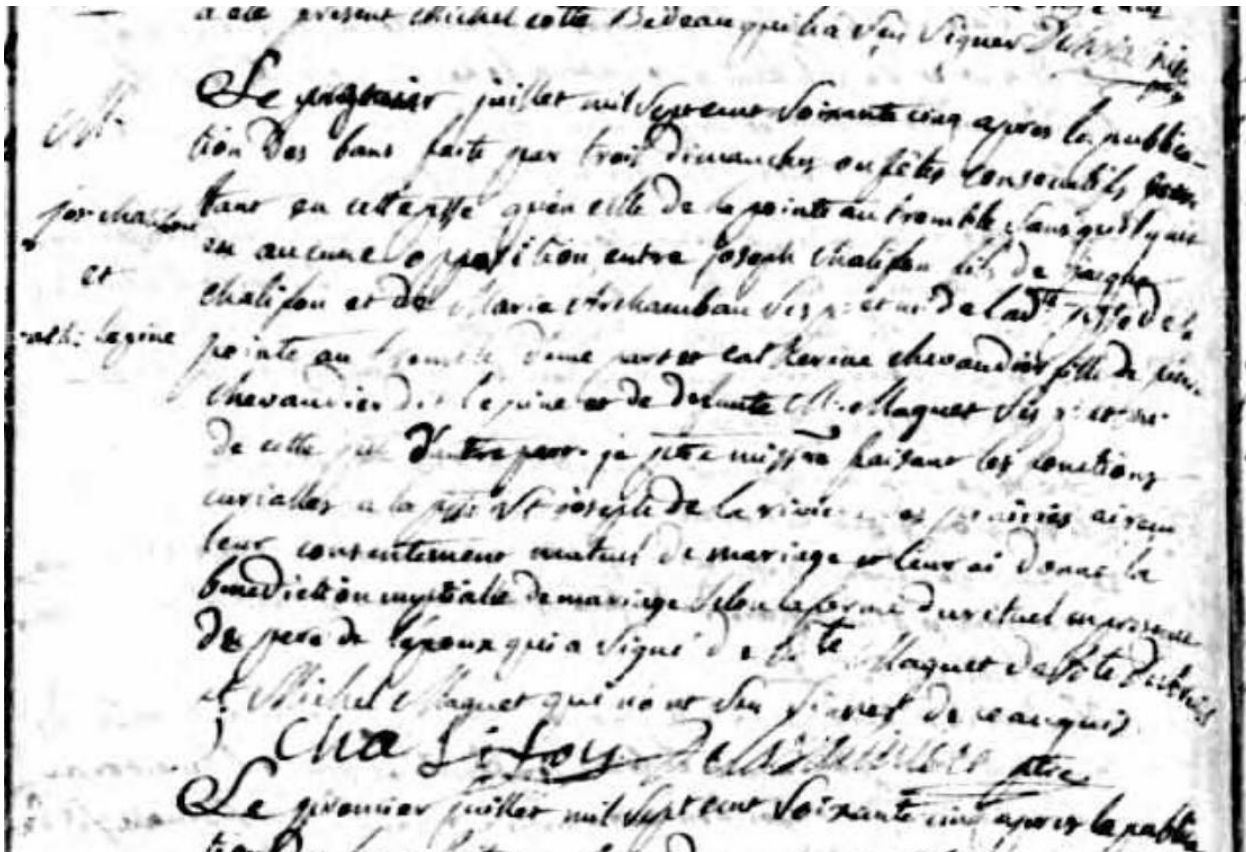 a été present Michel cotte Bedeau qui n'a sçu signer
M.
jos chalifou
et
cath: lepine
Le premier juillet mil sept cent soixante cinq apres la publica-
tion Des bans faite par trois dimanches ou fêtes consecutifs
tant en cette psse qu'en celle de la pointe au tremble sans qu'il y ait
eu aucune opposition entre joseph chalifou fils de jacque
chalifou et de Marie Archambau ses p: et m: de lad.te psse de la
pointe au tremble d'une part et catherine chevaudier fille de pierre
chevaudier dit lepine et de defunte M. Maguet ses p: et m:
de cette psse D'autre part. je ptre miss.re faisant les fonctions
curialles a la psse St joseph de la riviere des prairies ai recu
leur consentement mutuel de mariage et leur ai Donné la
benediction nuptialle de mariage selon la forme du rituel en presence
De pere de l'epoux qui a signé de Maguet
et Michel Maguet qui n'ont sçu signer de ce anquis
Cha Li foy ptre
Le premier juillet mil sept cent soixante cinq apres la publica